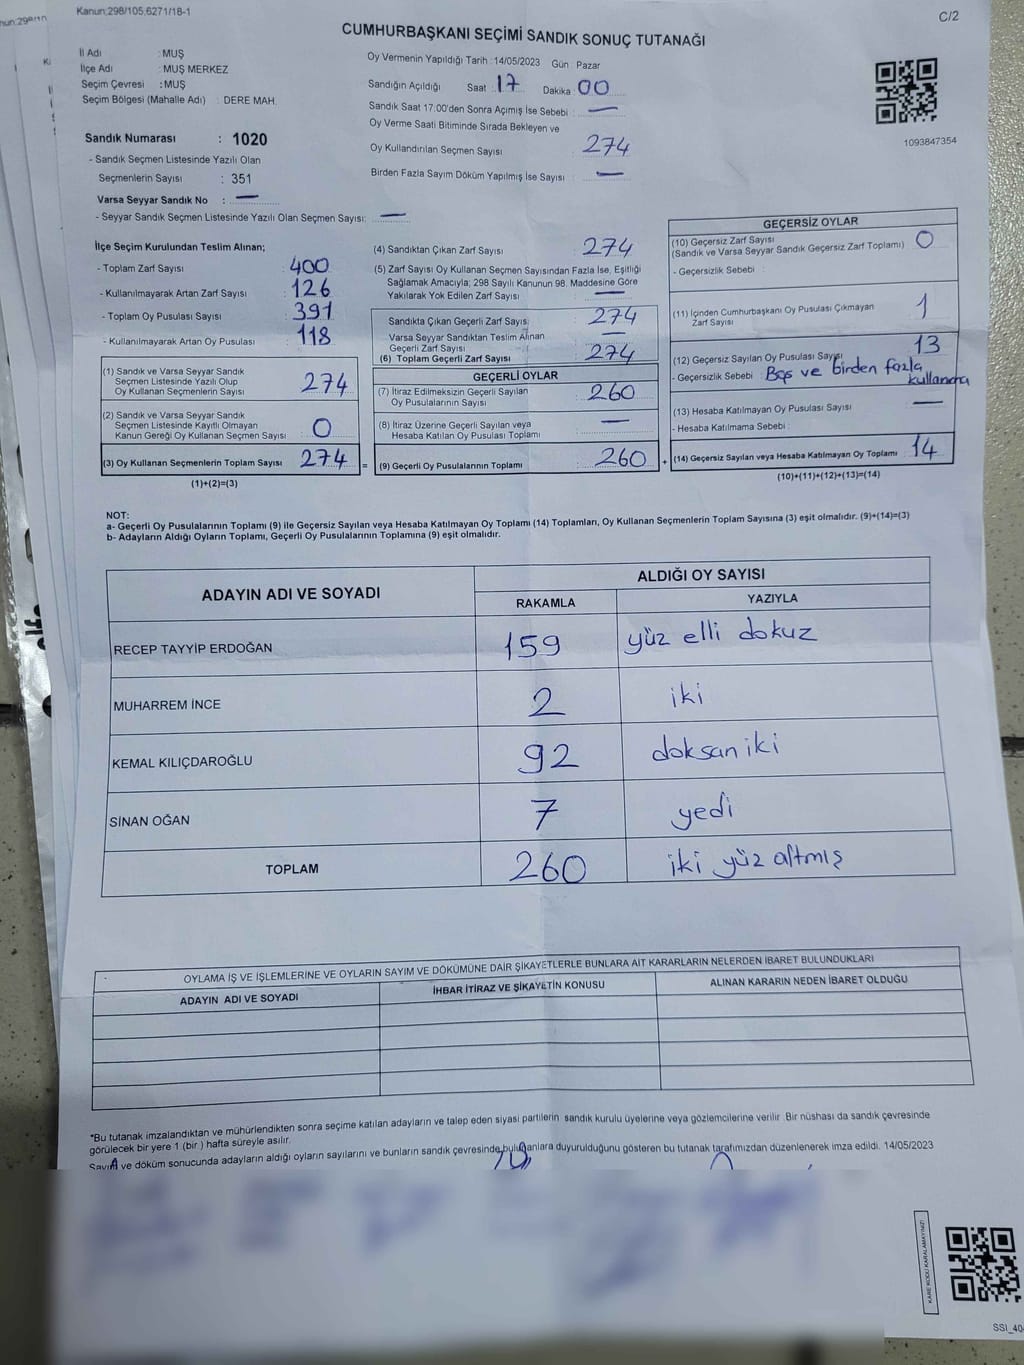 Kanun:298/105,6271/18-1
C/2
CUMHURBAŞKANI SEÇİMİ SANDIK SONUÇ TUTANAĞI
İl Adı : MUŞ
İlçe Adı : MUŞ MERKEZ
Seçim Çevresi : MUŞ
Seçim Bölgesi (Mahalle Adı) : DERE MAH.
Sandık Numarası : 1020
- Sandık Seçmen Listesinde Yazılı Olan
Seçmenlerin Sayısı : 351
Varsa Seyyar Sandık No : —
- Seyyar Sandık Seçmen Listesinde Yazılı Olan Seçmen Sayısı: —
Oy Vermenin Yapıldığı Tarih :14/05/2023 Gün : Pazar
Sandığın Açıldığı Saat : 17 Dakika : 00
Sandık Saat 17.00'den Sonra Açımış İse Sebebi : —
Oy Verme Saati Bitiminde Sırada Bekleyen ve
Oy Kullandırılan Seçmen Sayısı : 274
Birden Fazla Sayım Döküm Yapılmış İse Sayısı : —
1093847354
İlçe Seçim Kurulundan Teslim Alınan;
- Toplam Zarf Sayısı : 400
- Kullanılmayarak Artan Zarf Sayısı : 126
- Toplam Oy Pusulası Sayısı : 391
- Kullanılmayarak Artan Oy Pusulası : 118
(1) Sandık ve Varsa Seyyar Sandık
Seçmen Listesinde Yazılı Olup
Oy Kullanan Seçmenlerin Sayısı : 274
(2) Sandık ve Varsa Seyyar Sandık
Seçmen Listesinde Kayıtlı Olmayan
Kanun Gereği Oy Kullanan Seçmen Sayısı : 0
(3) Oy Kullanan Seçmenlerin Toplam Sayısı : 274
(1)+(2)=(3)
(4) Sandıktan Çıkan Zarf Sayısı : 274
(5) Zarf Sayısı Oy Kullanan Seçmen Sayısından Fazla İse, Eşitliği
Sağlamak Amacıyla; 298 Sayılı Kanunun 98. Maddesine Göre
Yakılarak Yok Edilen Zarf Sayısı : —
Sandıkta Çıkan Geçerli Zarf Sayısı : 274
Varsa Seyyar Sandıktan Teslim Alınan
Geçerli Zarf Sayısı : —
(6) Toplam Geçerli Zarf Sayısı : 274
GEÇERLİ OYLAR
(7) İtiraz Edilmeksizin Geçerli Sayılan
Oy Pusulalarının Sayısı : 260
(8) İtiraz Üzerine Geçerli Sayılan veya
Hesaba Katılan Oy Pusulası Toplamı : —
= (9) Geçerli Oy Pusulalarının Toplamı : 260 +
GEÇERSİZ OYLAR
(10) Geçersiz Zarf Sayısı
(Sandık ve Varsa Seyyar Sandık Geçersiz Zarf Toplamı) : 0
- Geçersizlik Sebebi :
(11) İçinden Cumhurbaşkanı Oy Pusulası Çıkmayan
Zarf Sayısı : 1
(12) Geçersiz Sayılan Oy Pusulası Sayısı : 13
- Geçersizlik Sebebi : Boş ve birden fazla
kullanma
(13) Hesaba Katılmayan Oy Pusulası Sayısı : —
- Hesaba Katılmama Sebebi :
(14) Geçersiz Sayılan veya Hesaba Katılmayan Oy Toplamı : 14
(10)+(11)+(12)+(13)=(14)
NOT:
a- Geçerli Oy Pusulalarının Toplamı (9) ile Geçersiz Sayılan veya Hesaba Katılmayan Oy Toplamı (14) Toplamları, Oy Kullanan Seçmenlerin Toplam Sayısına (3) eşit olmalıdır. (9)+(14)=(3)
b- Adayların Aldığı Oyların Toplamı, Geçerli Oy Pusulalarının Toplamına (9) eşit olmalıdır.
ADAYIN ADI VE SOYADI
ALDIĞI OY SAYISI
RAKAMLA YAZIYLA
RECEP TAYYİP ERDOĞAN 159 yüz elli dokuz
MUHARREM İNCE 2 iki
KEMAL KILIÇDAROĞLU 92 doksan iki
SİNAN OĞAN 7 yedi
TOPLAM 260 iki yüz altmış
OYLAMA İŞ VE İŞLEMLERİNE VE OYLARIN SAYIM VE DÖKÜMÜNE DAİR ŞİKAYETLERLE BUNLARA AİT KARARLARIN NELERDEN İBARET BULUNDUKLARI
ADAYIN ADI VE SOYADI İHBAR İTİRAZ VE ŞİKAYETİN KONUSU ALINAN KARARIN NEDEN İBARET OLDUĞU
*Bu tutanak imzalandıktan ve mühürlendikten sonra seçime katılan adayların ve talep eden siyasi partilerin sandık kurulu üyelerine veya gözlemcilerine verilir. Bir nüshası da sandık çevresinde
görülecek bir yere 1 (bir ) hafta süreyle asılır.
Sayım ve döküm sonucunda adayların aldığı oyların sayılarını ve bunların sandık çevresinde bulunanlara duyurulduğunu gösteren bu tutanak tarafımızdan düzenlenerek imza edildi. 14/05/2023
KARE KODU KARALAMAYINIZ!